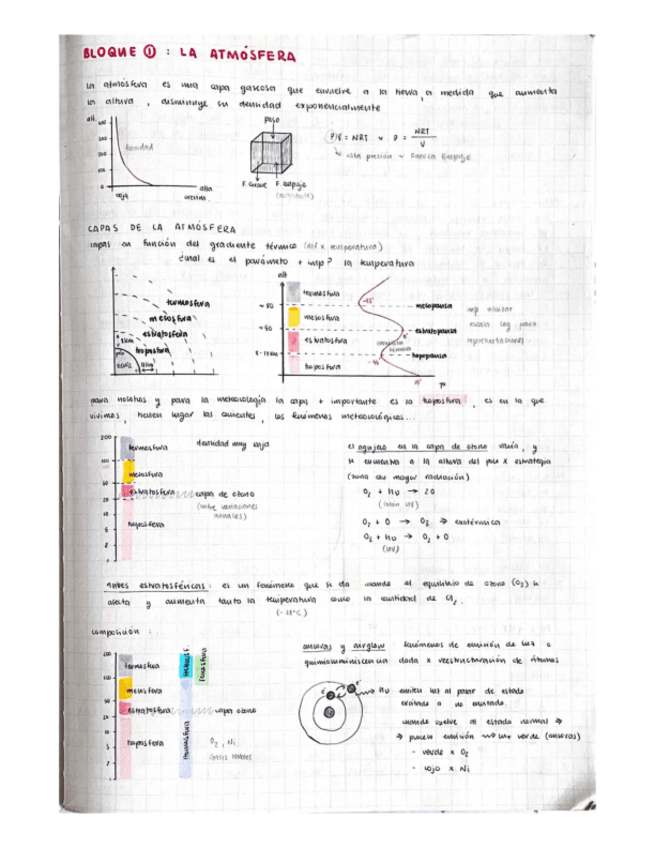 BLOQUE ① : LA ATMÓSFERA
la atmósfera es una capa gaseosa que envuelve a la tierra, a medida que aumenta
la altura, disminuye su densidad exponencialmente
alt.
densidad
peso
F. empuje
PV = NRT → P = NRT / V
esta presión → fuerza empuje
CAPAS DE LA ATMÓSFERA
capas en función del gradiente térmico (alt x temperatura)
¿cual es el parámetro + imp? la temperatura
termosfera
mesosfera
estratosfera
troposfera
alt
termosfera
mesosfera
estratosfera
troposfera
mesopausa
estratopausa
tropopausa
Tª
para nosotros y para la meteorología la capa + importante es la troposfera, es en la que
vivimos, tienen lugar las corrientes, los fenómenos meteorológicos...
200
termosfera
mesosfera
estratosfera
troposfera
densidad muy baja
capa de ozono
(sufre variaciones
anuales)
el agujero en la capa de ozono varía, y
se encuentra a la altura del polo x estrategia
(zona con mayor radiación)
O₂ + hν → 2O
O₂ + O → O₃ ⇒ exotérmica
O₃ + hν → O₂ + O
(UV)
nubes estratosféricas: es un fenómeno que se da cuando el equilibrio de ozono (O₃) se
afecta y aumenta tanto la temperatura como la cantidad de Cl₂.
composición :
termosfera
mesosfera
estratosfera
troposfera
capa ozono
Homosfera
O₂, Ni
gases nobles
auroras y airglow fenómenos de emisión de luz o
quimioluminiscencia dada x reestructuración de átomos
e⁻
hν
emiten luz al pasar de estado
excitado a no excitado.
cuando vuelve al estado normal ⇒
⇒ proceso emisión → luz verde (auroras)
- verde x O₂
- rojo x Ni